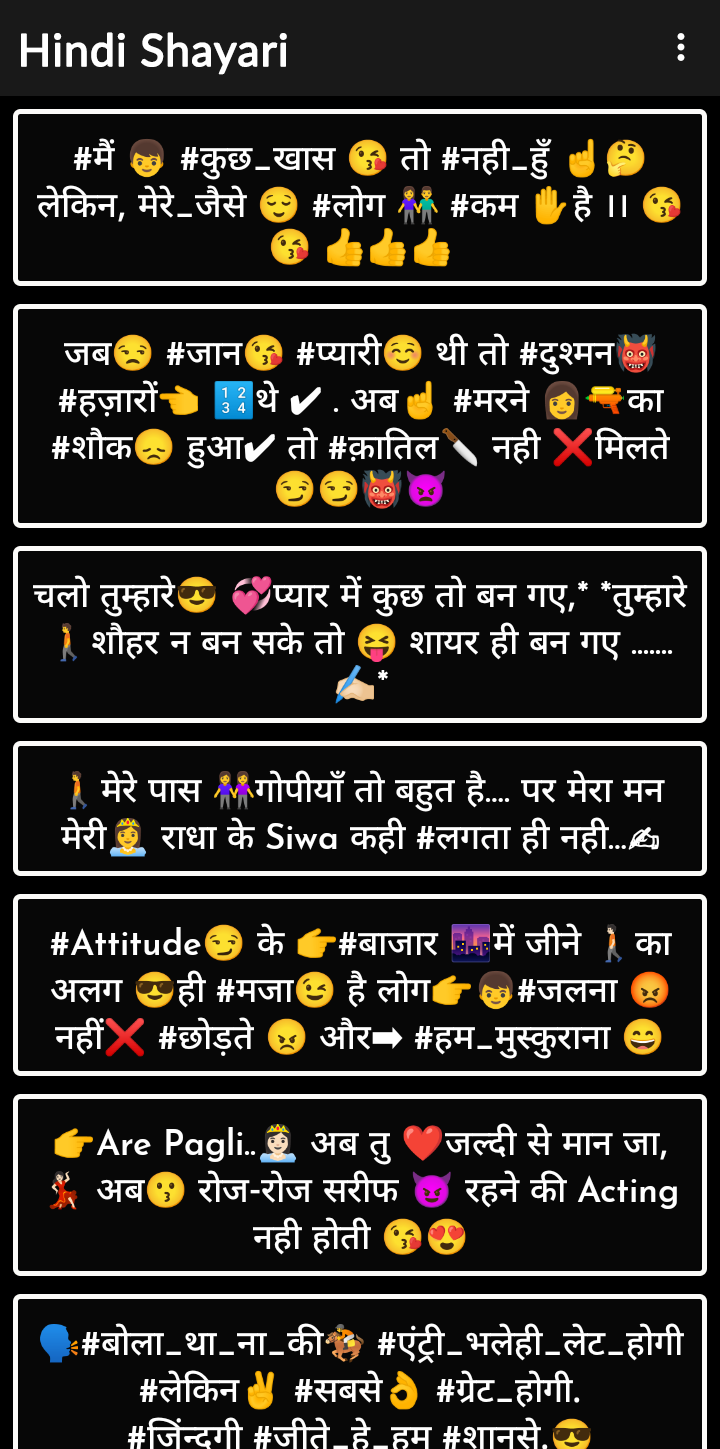 Hindi Shayari
#मैं 👦 #कुछ_खास 😘 तो #नही_हुँ ☝️🤔
लेकिन, मेरे_जैसे 😌 #लोग 👫 #कम ✋है ।। 😘
😘 👍👍👍
जब😒 #जान😘 #प्यारी☺️ थी तो #दुश्मन👹
#हज़ारों👈 🔢थे ✔ . अब☝️ #मरने 👩🔫का
#शौक😞 हुआ✔ तो #क़ातिल🔪 नही ❌मिलते
😏😏👹👿
चलो तुम्हारे😎 💞प्यार में कुछ तो बन गए,* *तुम्हारे
🚶शौहर न बन सके तो 😝 शायर ही बन गए .......
✍🏻*
🚶मेरे पास 👭गोपीयाँ तो बहुत है.... पर मेरा मन
मेरी👸 राधा के Siwa कही #लगता ही नही...✍
#Attitude😏 के 👉#बाजार 🌆में जीने 🚶🏻का
अलग 😎ही #मजा😉 है लोग👉👦#जलना 😡
नहीं❌ #छोड़ते 😠 और➡ #हम_मुस्कुराना 😄
👉Are Pagli..👸🏻 अब तु ❤️जल्दी से मान जा,
💃🏻 अब😗 रोज-रोज सरीफ 😈 रहने की Acting
नही होती 😘😍
🗣#बोला_था_ना_की🏇 #एंट्री_भलेही_लेट_होगी
#लेकिन✌️ #सबसे👌 #ग्रेट_होगी.
#जिंन्दगी #जीते_हे_हम #शानसे.😎